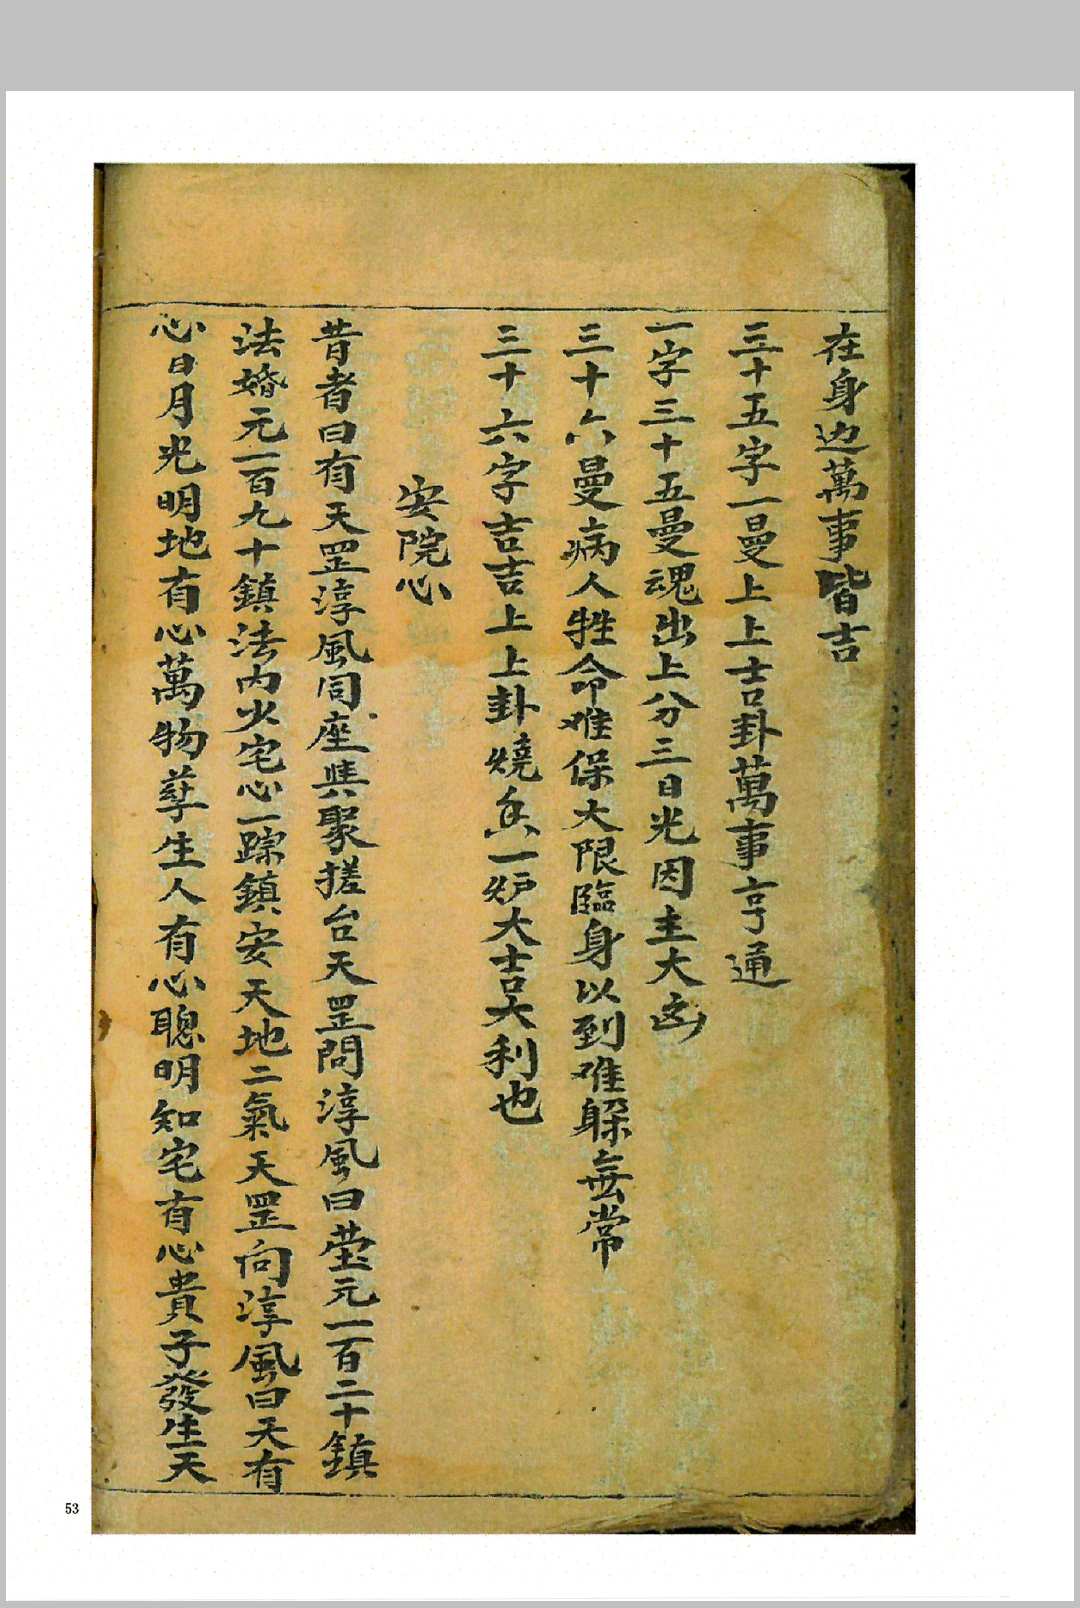 在身边萬事皆吉
三十五字一曼上上吉卦萬事亨通
一字三十五曼魂出上分三日光因主大凶
三十六曼病人牲命难保大限臨身以到难躲無常
三十六字吉吉上上卦燒香一炉大吉大利也
安院心
昔者曰有天罡淳風同座與聚搓台天罡問淳風曰塋元一百二十鎮
法婚元一百九十鎮法内火宅心一踪鎮安天地二氣天罡向淳風曰天有
心日月光明地有心萬物孳生人有心聰明知宅有心貴子發生天
53